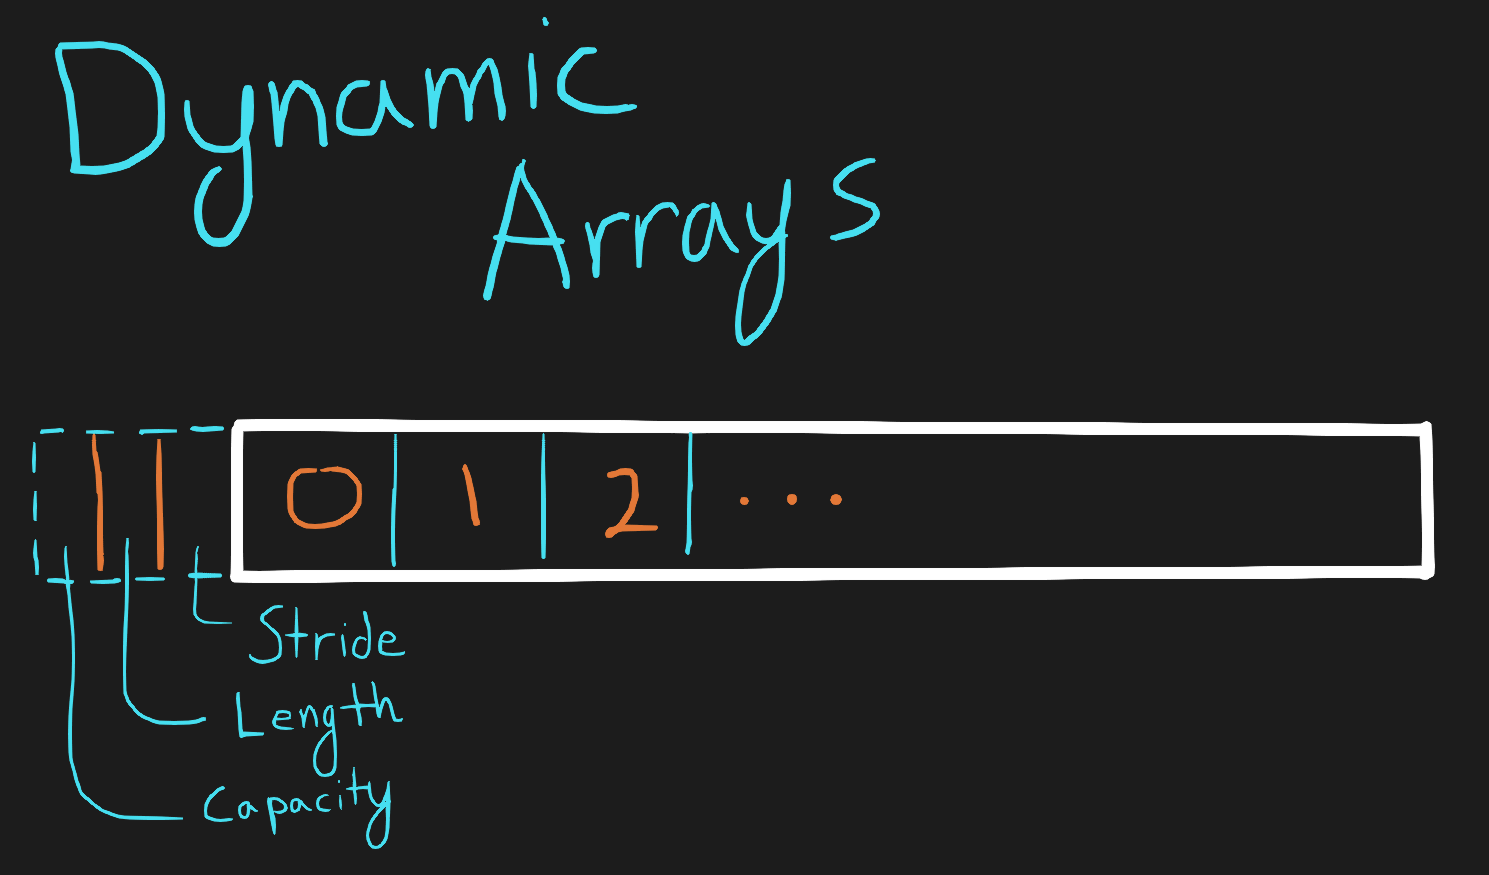 Dynamic
Arrays
0 1 2 ...
Stride
Length
Capacity